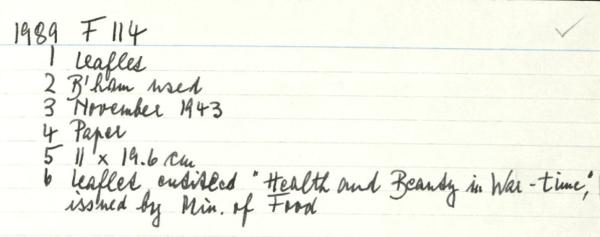 1989 F 114
1 Leaflet
2 B'ham used
3 November 1943
4 Paper
5 11 x 19.6 cm
6 Leaflet entitled "Health and Beauty in War-time",
issued by Min. of Food